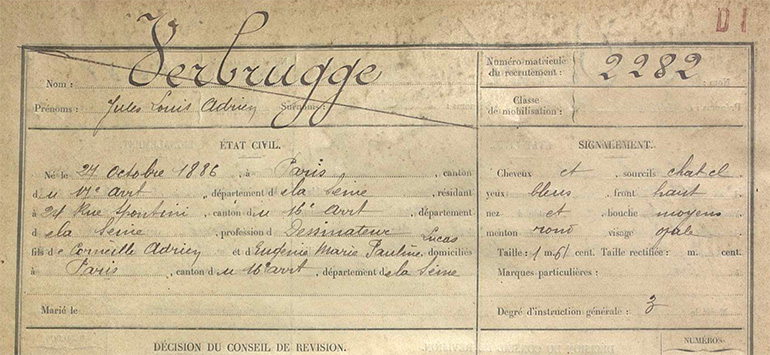 D 1
Nom : Verbrugge
Prénoms : Jules Louis Adrien Surnoms :
Numéro matricule du recrutement : 2282
Classe de mobilisation :
ÉTAT CIVIL.
Né le 27 octobre 1886, à Paris, canton
du 17e arrt, département de la Seine, résidant
à 24 Rue Spontini, canton du 16e arrt, département
de la Seine, profession de Dessinateur
fils de Corneille Adrien et d'Eugénie Marie Pauline Lucas, domiciliés
à Paris, canton du 16e arrt, département de la Seine
Marié le
SIGNALEMENT.
Cheveux et sourcils chat cl
yeux bleus, front haut
nez et bouche moyens
menton rond visage ovale
Taille : 1 m. 61 cent. Taille rectifiée : m. cent.
Marques particulières :
Degré d'instruction générale : 3
DÉCISION DU CONSEIL DE REVISION.
NUMÉROS.